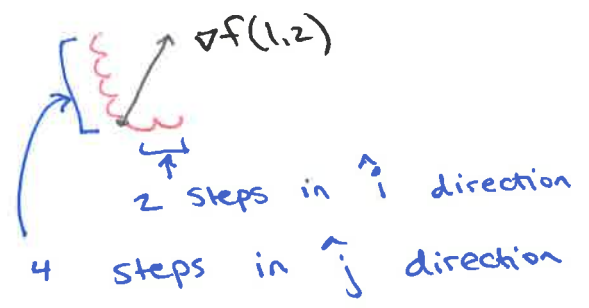 ∇f(1,2)
2 steps in î direction
4 steps in ĵ direction